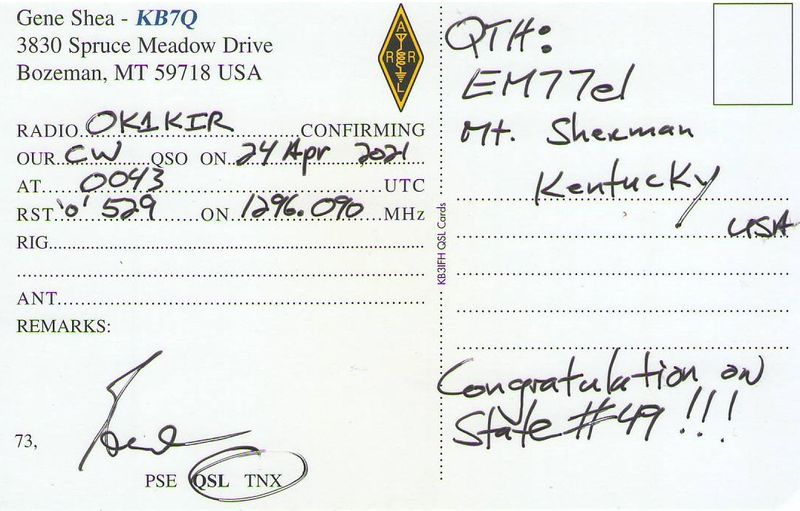 Gene Shea - KB7Q
3830 Spruce Meadow Drive
Bozeman, MT 59718 USA
A
R R
L
RADIO OK1KIR CONFIRMING
OUR CW QSO ON 24 Apr 2021
AT 0043 UTC
RST "o" 529 ON 1296.090 MHz
RIG
ANT
REMARKS:
73,
Gene
PSE QSL TNX
KB3IFH QSL Cards
QTH:
EM77el
Mt. Sherman
Kentucky
USA
Congratulation on
State #49 !!!